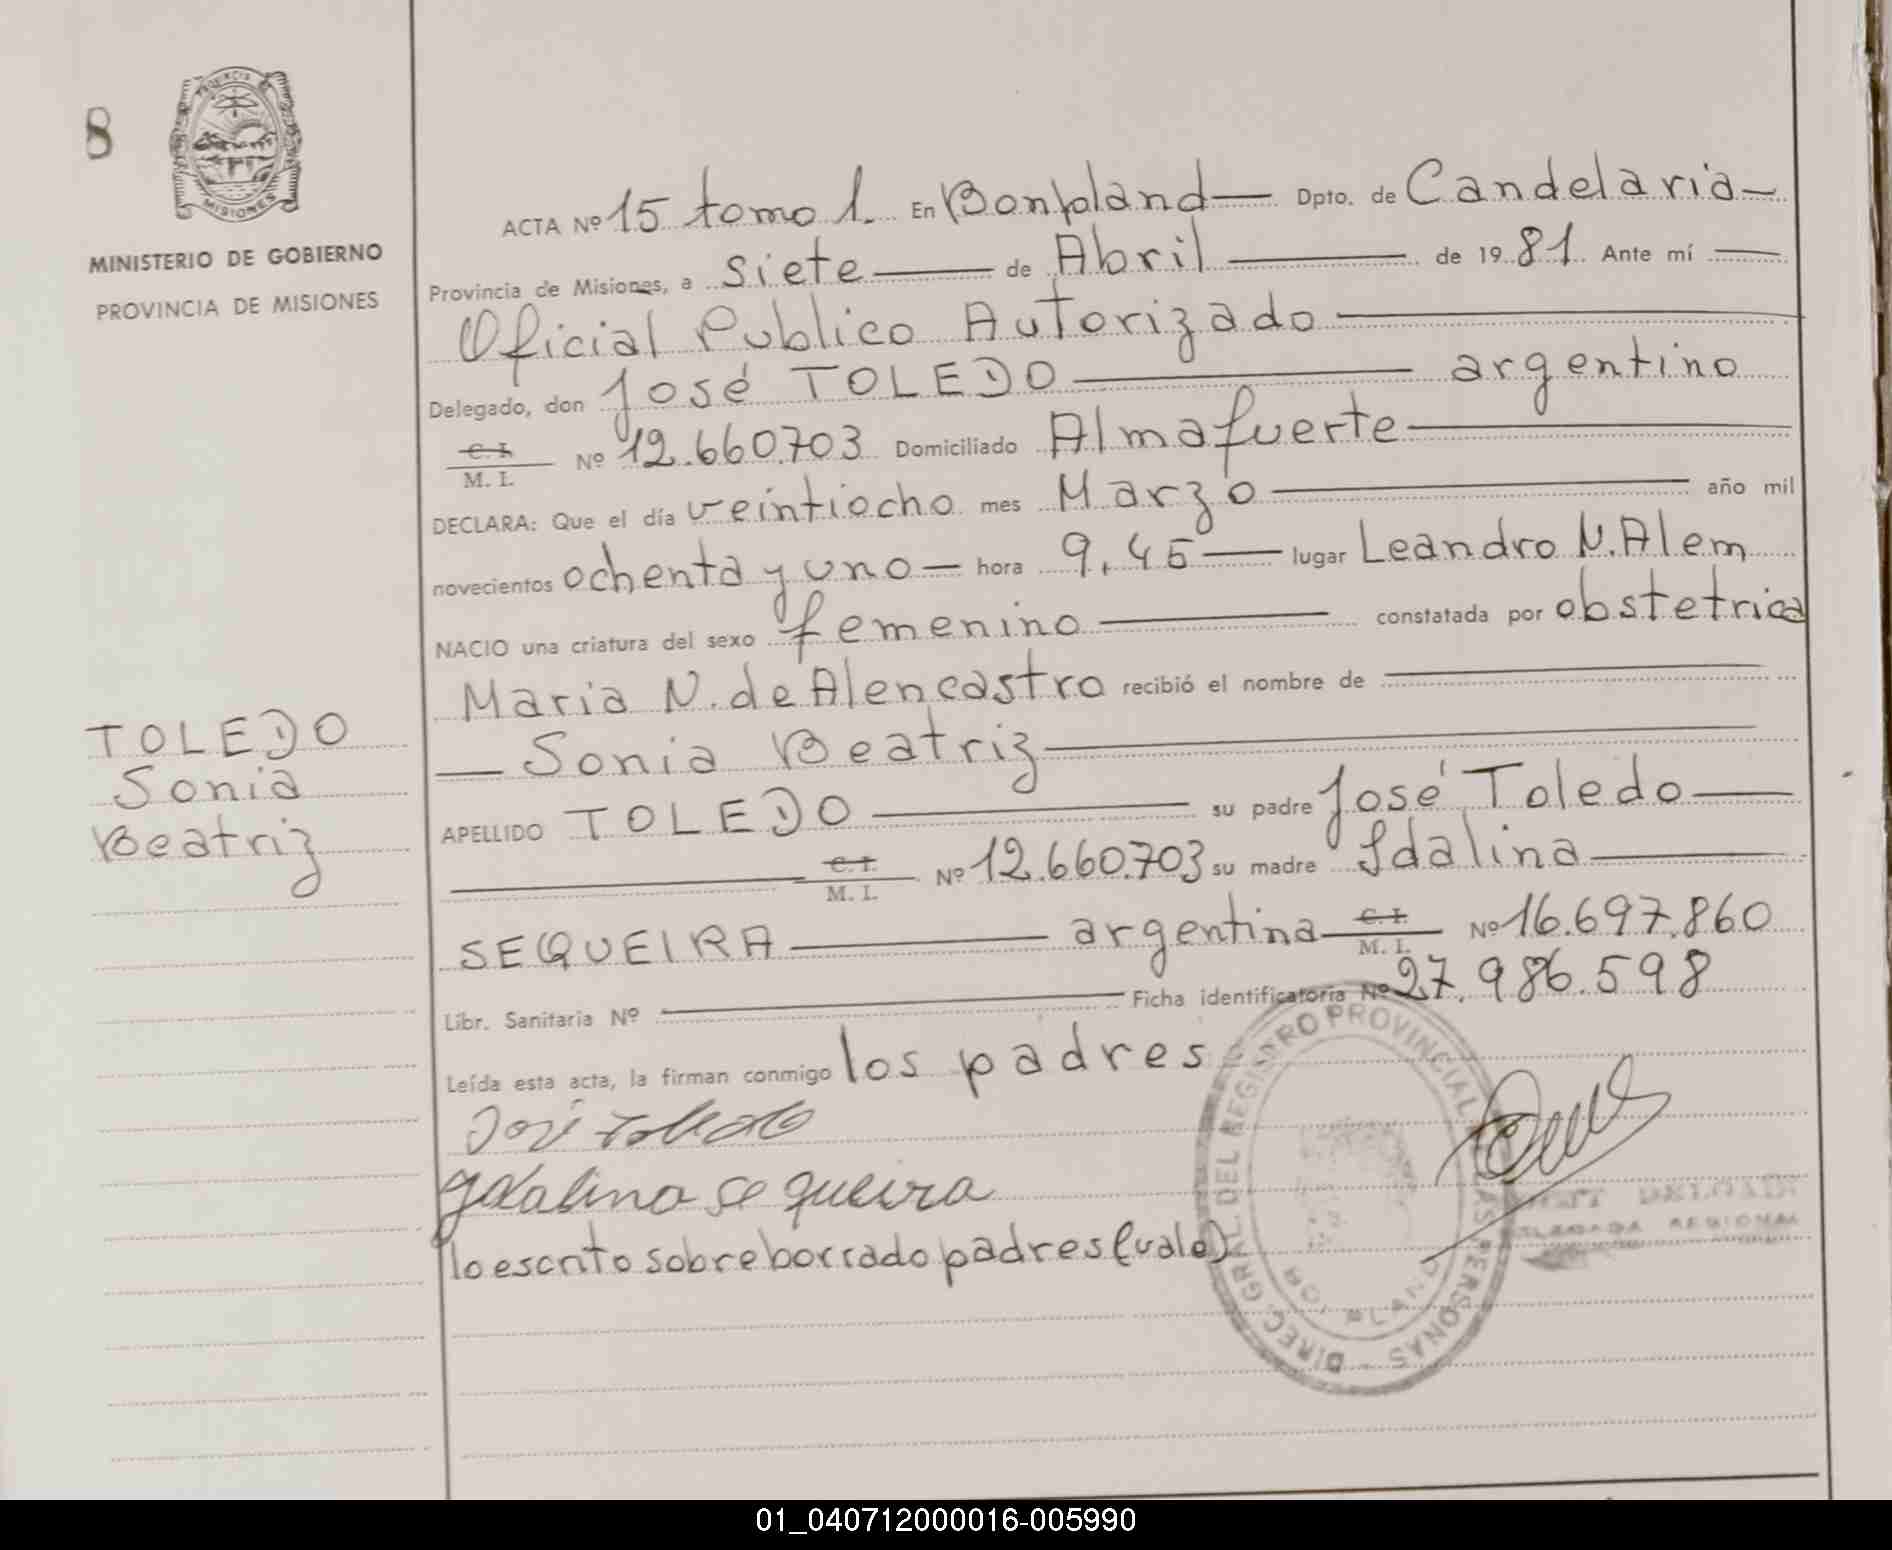 8
PROVINCIA
MISIONES
MINISTERIO DE GOBIERNO
PROVINCIA DE MISIONES
TOLEDO
Sonia
Beatriz
ACTA Nº 15 tomo 1. En Bonpland — Dpto. de Candelaria —
Provincia de Misiones, a siete — de Abril — de 1981. Ante mí —
Oficial Publico Autorizado —
Delegado, don José TOLEDO — argentino
C. I. / M. I. Nº 12.660.703 Domiciliado Almafuerte —
DECLARA: Que el día veintiocho mes Marzo — año mil
novecientos ochenta y uno — hora 9,45 — lugar Leandro N. Alem
NACIO una criatura del sexo femenino — constatada por obstetrica
Maria N. de Alencastro recibió el nombre de —
— Sonia Beatriz —
APELLIDO TOLEDO — su padre José Toledo —
— C. I. / M. I. Nº 12.660.703 su madre Idalina —
SEQUEIRA — argentina — C. I. / M. I. Nº 16.697.860
Libr. Sanitaria Nº — Ficha identificatoria Nº 27.986.598
Leída esta acta, la firman conmigo los padres
José Toledo
Idalina Sequeira
lo escrito sobre borrado padres (vale)
DIREC. GRAL. DEL REGISTRO PROVINCIAL LAS PERSONAS
REGIONAL
01_040712000016-005990